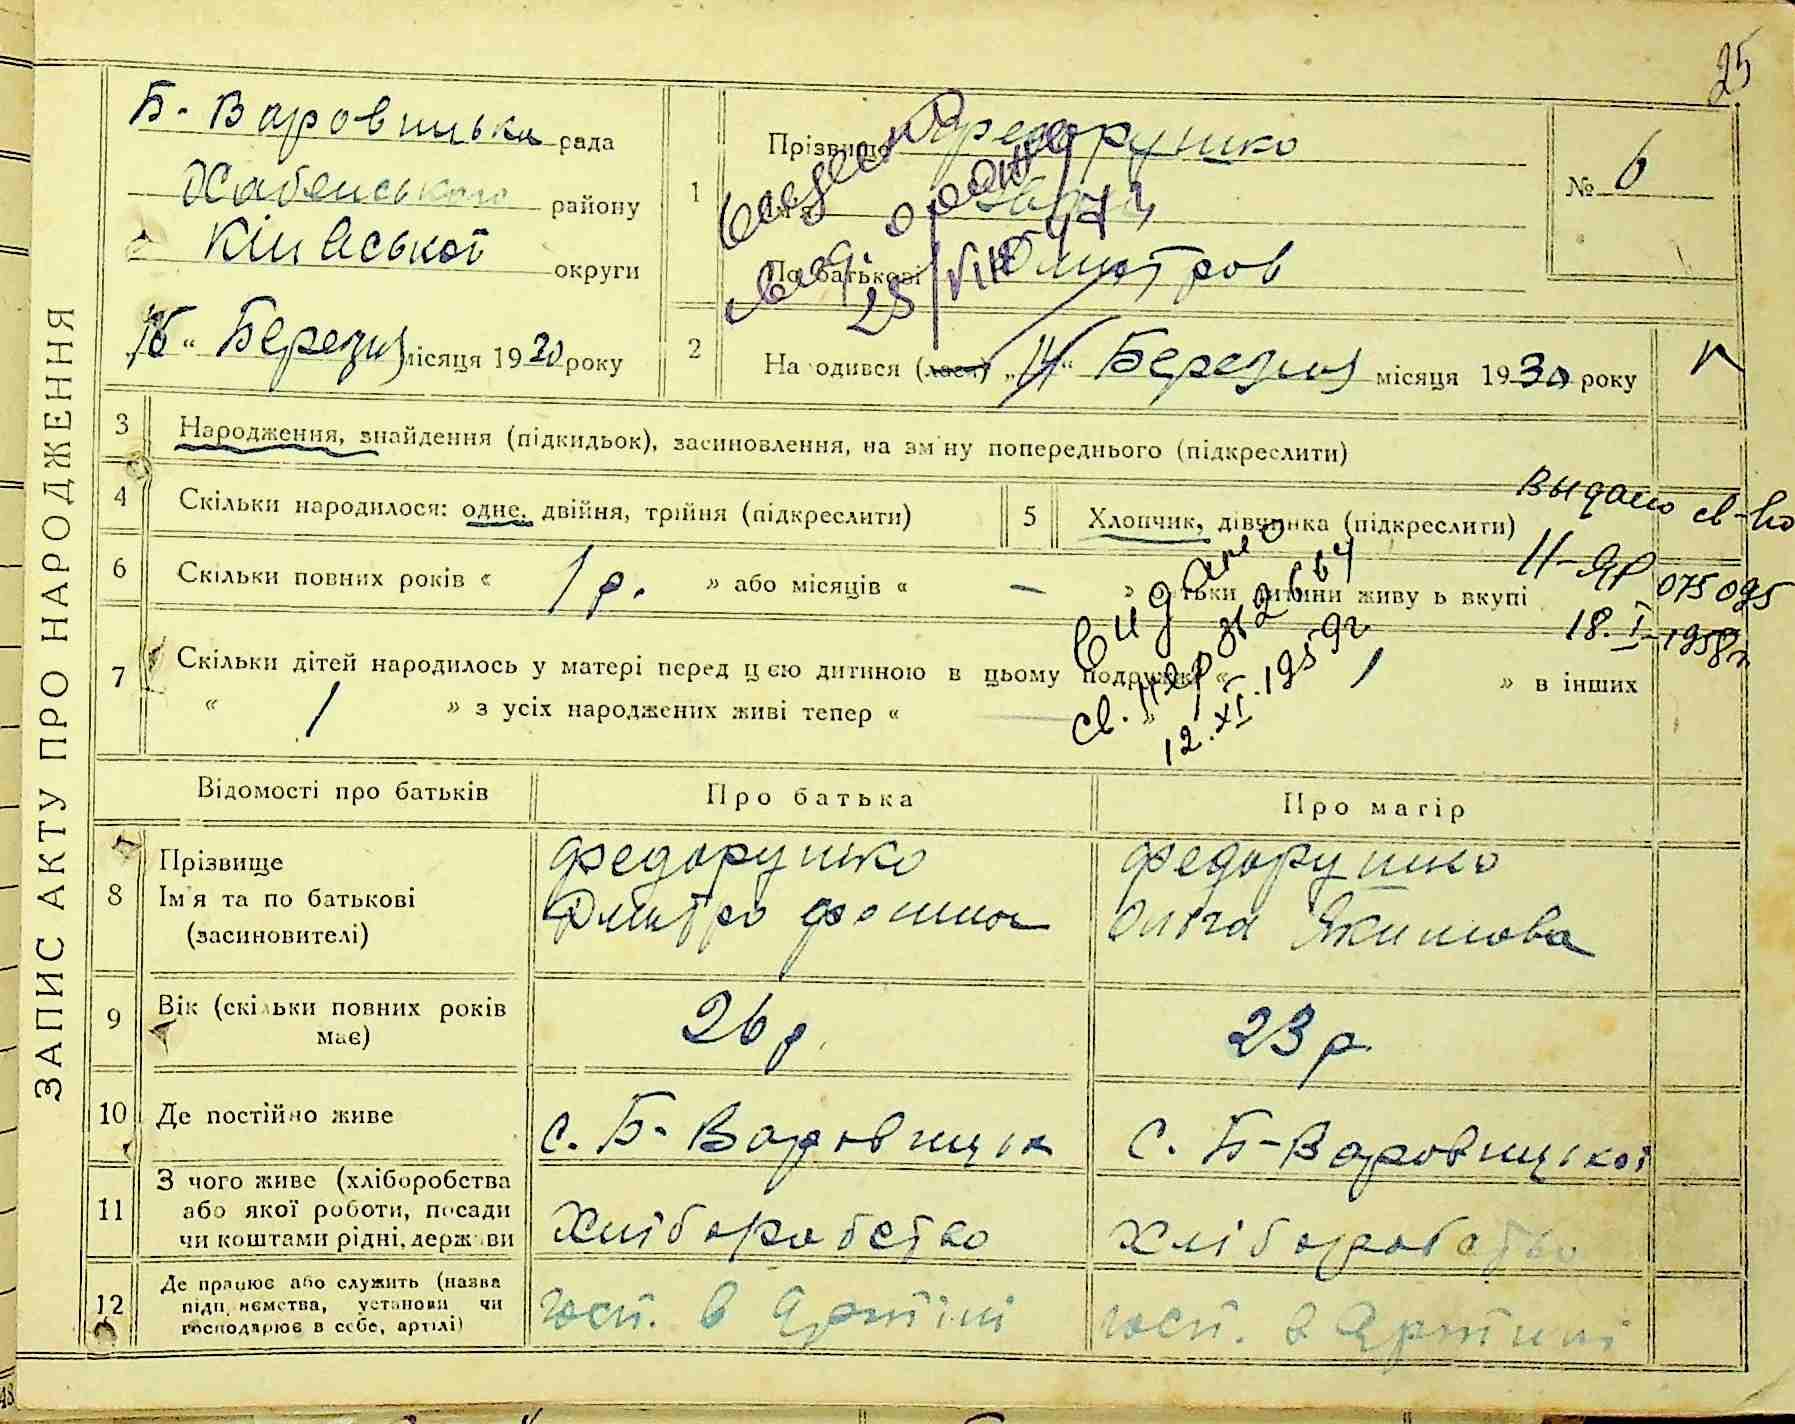 25
Б-Варовицька рада
Хабенського району
Київської округи
"16" Березня місяця 1930 року
1
Прізвище Федорушко
Ім'я Іван
По батькові Дмитров
25 VIII
№ 6
2
На одився (лася) „14“ Березня місяця 1930 року
ЗАПИС АКТУ ПРО НАРОДЖЕННЯ
3 Народження, знайдення (підкидьок), засиновлення, на зміну попереднього (підкреслити)
4 Скільки народилося: одне, двійня, трійня (підкреслити)
5 Хлопчик, дівчинка (підкреслити)
Выдано св-во
II-ЯР 075095
18.I-1958г
6 Скільки повних років « 1 р. » або місяців « — » батьки дитини живуть вкупі
Видано
св. II ЯР
12.XI.1959г
7 Скільки дітей народилось у матері перед цією дитиною в цьому подружжі « 1 » в інших
« 1 » з усіх народжених живі тепер « — »
Відомості про батьків
Про батька
Про матір
8 Прізвище
Ім'я та по батькові
(засиновителі)
Федорушко
Дмитро
Федорушко
Ольга Якимова
9 Вік (скільки повних років
має)
26 р.
23 р
10 Де постійно живе
с. Б-Варовицьк
с. Б-Варовицької
11 З чого живе (хліборобства
або якої роботи, посади
чи коштами рідні, держави
Хліборобство
Хліборобство
12 Де працює або служить (назва
підприємства, установи чи
господарює в себе, артілі)
госп. в Артілі
госп. в Артілі
48